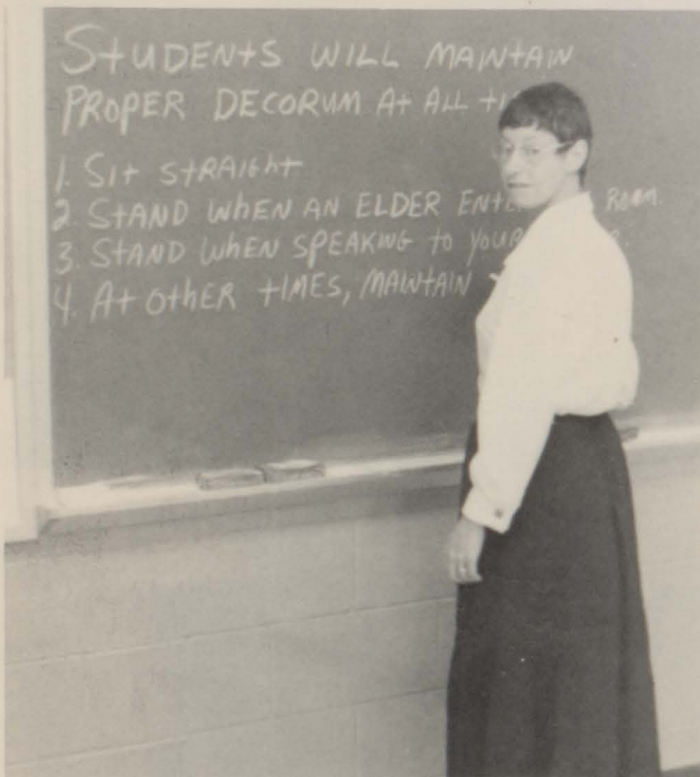 StUDENtS WILL MAINtAIN
PROPER DECORUM At ALL
1. SIt StRAIGht
2. StAND WhEN AN ELDER ROOM.
3. StAND WhEN SPEAKING tO
4. At OthER tIMES, MAINtAIN